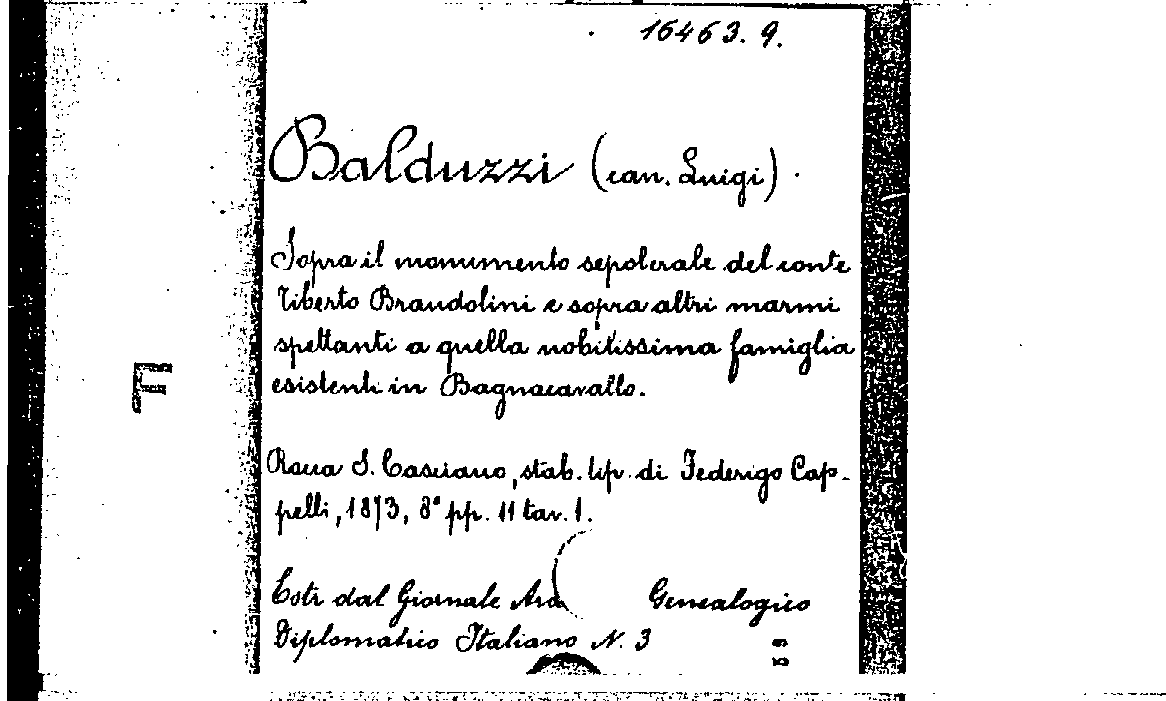 16463. 9.
Balduzzi (can. Luigi).
Sopra il monumento sepolcrale del conte
Tiberto Brandolini e sopra altri marmi
spettanti a quella nobilissima famiglia
esistenti in Bagnacavallo.
F
Rocca S. Casciano, stab. tip. di Federigo Cap-
pelli, 1873, 8° pp. 11 tav. 1.
Estr dal Giornale Ara Genealogico
Diplomatico Italiano N. 3